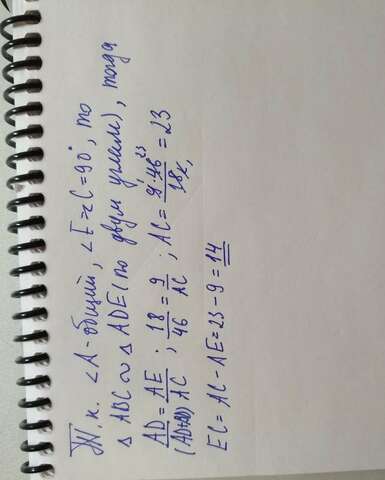 Т.к. ∠A-общий, ∠E=∠C=90°, то
△ABC ∾ △ADE (по двум углам), тогда
AD/(AD+BD) = AE/AC ; 18/46 = 9/AC ; AC = 9·46/18 = 23
EC = AC - AE = 23 - 9 = 14